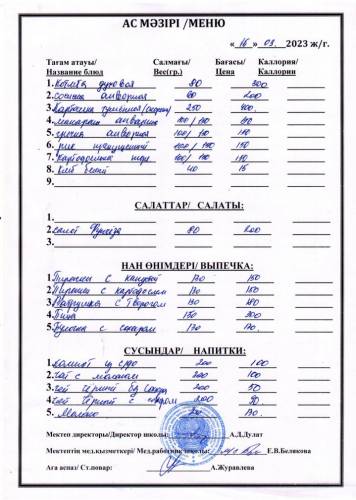 АС МӘЗІРІ /МЕНЮ
« 16 » 03 2023 ж/г.
Тағам атауы/ Салмағы/ Бағасы/ Каллория/
Название блюд Вес(гр.) Цена Каллории
1. Котлета духовая 80 300
2. сосиска отварная 80 200
3. 250 400
4. макароны отварные 100/ 180
5. гречка отварная 100/ 180
6. рис 100/ 150
7. картофельное пюре 100/ 180
8. Хлеб белый 40 15
9.
САЛАТТАР/ САЛАТЫ:
1.
2. салат 80 200
3.
НАН ӨНІМДЕРІ/ ВЫПЕЧКА:
1. Пирожки с капустой 150
2. Пирожки с картофелем 150
3. Ватрушка с творогом 180
4. Пицца 300
5. Булочка с сахаром 170
СУСЫНДАР/ НАПИТКИ:
1. компот из с/фр 200 100
2. чай с молоком 200 100
3. чай черный без сахара 200 50
4. чай черный с сахаром 200
5. Молоко
Мектеп директоры/Директор школы: А.Д.Дулат
Мектептің мед.қызметкері/ Мед.работник школы: Е.В.Белякова
Аға аспаз/ Ст.повар: А.Журавлева